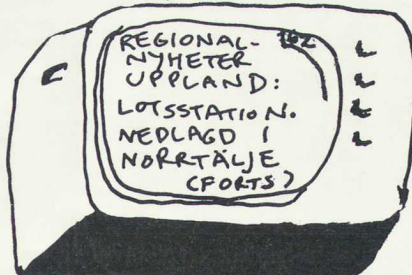 REGIONAL-
NYHETER
UPPLAND:
LOTSSTATION.
NEDLAGD I
NORRTÄLJE
(FORTS)